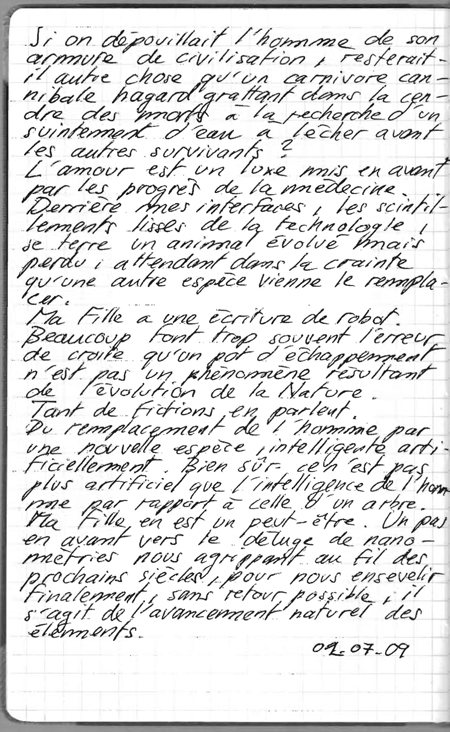 Si on dépouillait l'homme de son
armure de civilisation, resterait-
il autre chose qu'un carnivore can-
nibale hagard grattant dans la cen-
dre des morts à la recherche d'un
suintement d'eau à lécher avant
les autres survivants ?
L'amour est un luxe mis en avant
par les progrès de la médecine.
Derrière mes interfaces, les scintil-
lements lisses de la technologie,
se terre un animal évolué mais
perdu ; attendant dans la crainte
qu'une autre espèce vienne le rempla-
cer.
Ma Fille a une écriture de robot.
Beaucoup font trop souvent l'erreur
de croire qu'un pot d'échappement
n'est pas un phénomène résultant
de l'évolution de la Nature.
Tant de fictions en parlent.
Du remplacement de l'homme par
une nouvelle espèce, intelligente arti-
ficiellement. Bien sûr ce n'est pas
plus artificiel que l'intelligence de l'hom-
me par rapport à celle d'un arbre.
Ma Fille en est un peut-être. Un pas
en avant vers le déluge de nano-
métries nous agrippant au fil des
prochains siècles, pour nous ensevelir
finalement, sans retour possible, il
s'agit de l'avancement naturel des
éléments.
02-07-09